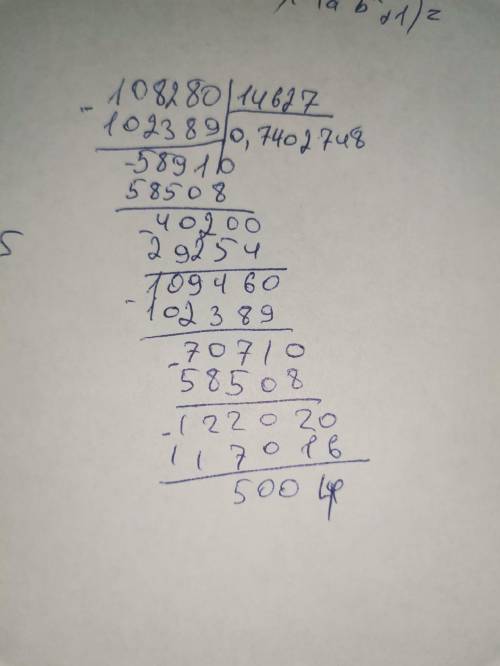 1a b +1)=
- 108280 | 14627
102389 0,7402748
-58910
58508
-40200
29254
109460
-102389
-70710
58508
-122020
117016
5004
5